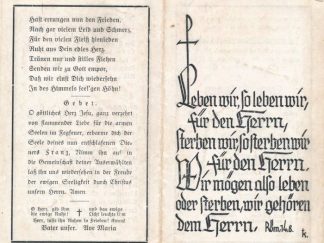 Hast errungen nun den Frieden,
Nach gar vielem Leid und Schmerz,
Für den vielen Fleiß hienieden
Ruht aus Dein edles Herz
Tränen nur und stilles Flehen
Senden wir zu Gott empor,
Daß wir einst Dich wiedersehn
In des Himmels seel'gen Höhn!
Gebet.
O göttliches Herz Jesu, ganz verzehrt
von flammender Liebe für die armen
Seelen im Fegfeuer, erbarme dich der
Seele deines nun entschlafenen Die-
ners Franz, Nimm ihn auf in
die Gemeinschaft deiner Auserwählten
laß ihn uns wiedersehen in der Freude
der ewigen Seeligkeit durch Christus
unsern Herrn. Amen
O Herr, gib ihm und das ewige
die ewige Ruhe! Licht leuchte ihm
Herr, laß ihn Ruhen in Frieden! Amen!
Vater unser. Ave Maria
Leben wir, so leben wir,
für den Herrn,
sterben wir, so sterben wir
für den Herrn.
Wir mögen also leben
oder sterben, wir gehören
dem Herrn. Röm. 14.8.
k.